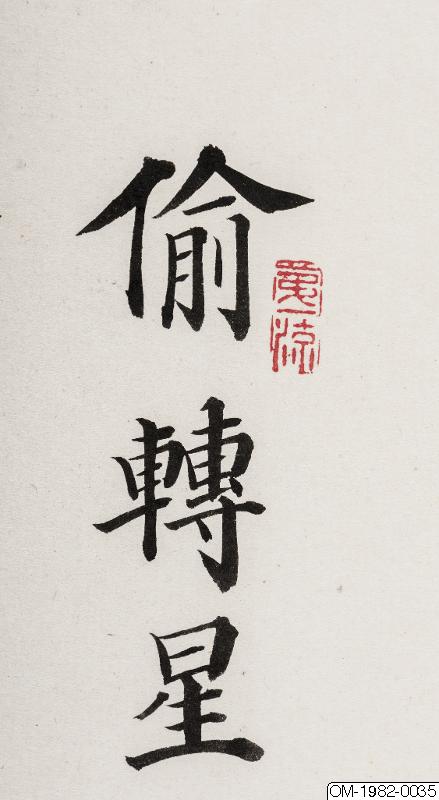 偷轉星
OM-1982-0035